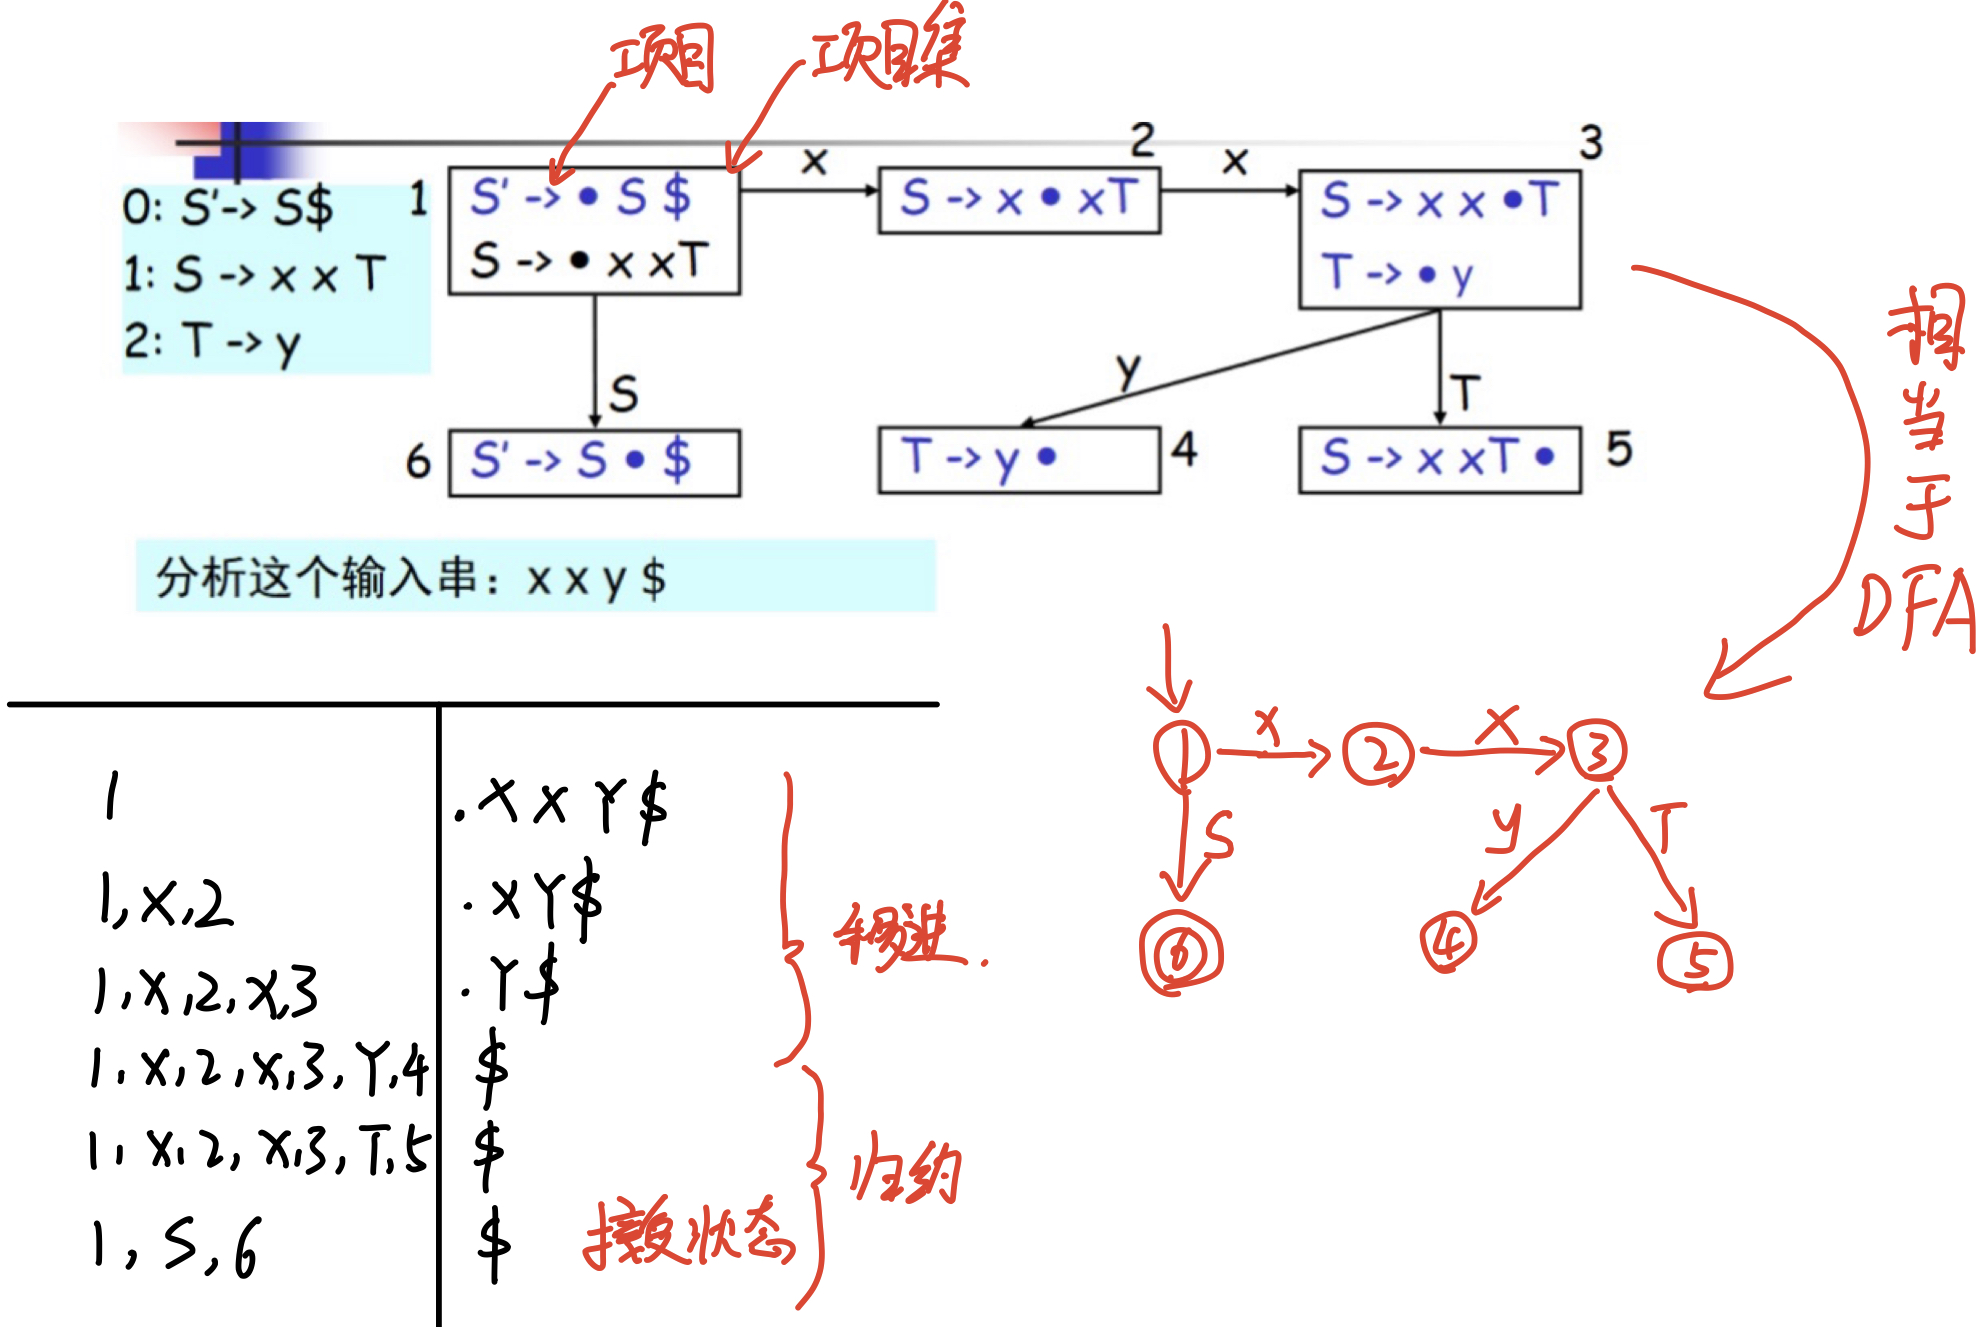 项目
项目集
0: S'-> S$
1: S -> x x T
2: T -> y
1
S' -> • S $
S -> • x xT
x
2
S -> x • xT
x
3
S -> x x •T
T -> • y
S
y
T
6
S' -> S • $
T -> y •
4
S -> x xT •
5
相当于DFA
分析这个输入串：x x y $
1
. X X Y $
1, X, 2
. X Y $
1, X, 2, X, 3
. Y $
1, X, 2, X, 3, Y, 4
$
1, X, 2, X, 3, T, 5
$
1, S, 6
$
移进.
归约
接受状态
1
x
2
x
3
S
y
T
6
4
5